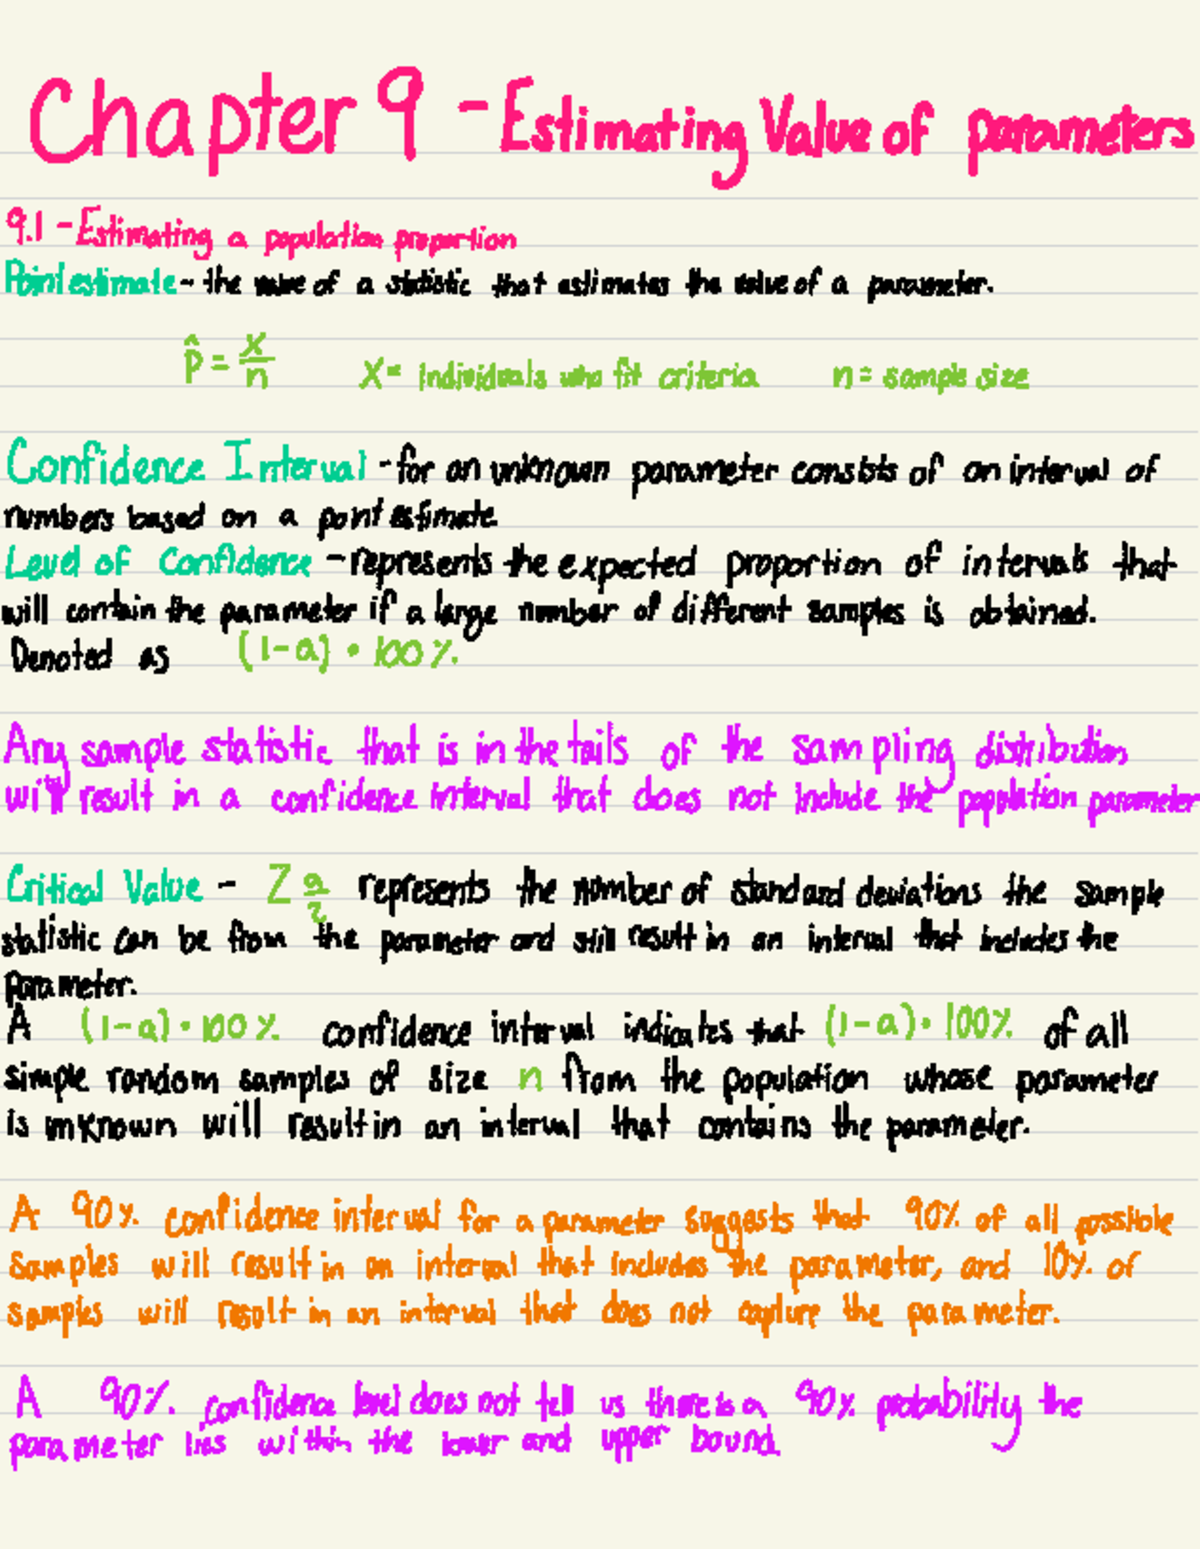 Chapter 9 - Estimating Value of parameters
9.1 - Estimating a population proportion
Point estimate - the value of a statistic that estimates the value of a parameter.
p̂ = x/n   X = Individuals who fit criteria   n = sample size
Confidence Interval - for an unknown parameter consists of an interval of
numbers based on a point estimate
Level of Confidence - represents the expected proportion of intervals that
will contain the parameter if a large number of different samples is obtained.
Denoted as (1-a) • 100%.
Any sample statistic that is in the tails of the sampling distribution
will result in a confidence interval that does not include the population parameter
Critical Value - Z a/2 represents the number of standard deviations the sample
statistic can be from the parameter and still result in an interval that includes the
parameter.
A (1-a) • 100% confidence interval indicates that (1-a) • 100% of all
simple random samples of size n from the population whose parameter
is unknown will result in an interval that contains the parameter.
A 90% confidence interval for a parameter suggests that 90% of all possible
samples will result in an interval that includes the parameter, and 10% of
samples will result in an interval that does not capture the parameter.
A 90% confidence level does not tell us there is a 90% probability the
parameter lies within the lower and upper bound.